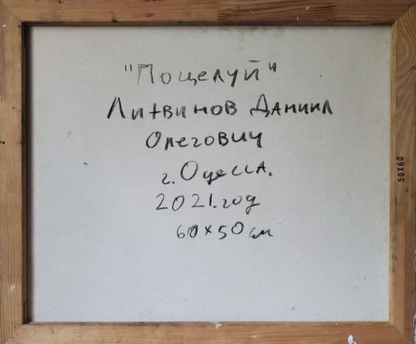 "Поцелуй"
Литвинов Даниил
Олегович
г. Одесса.
2021.год
60х50 см
50X60